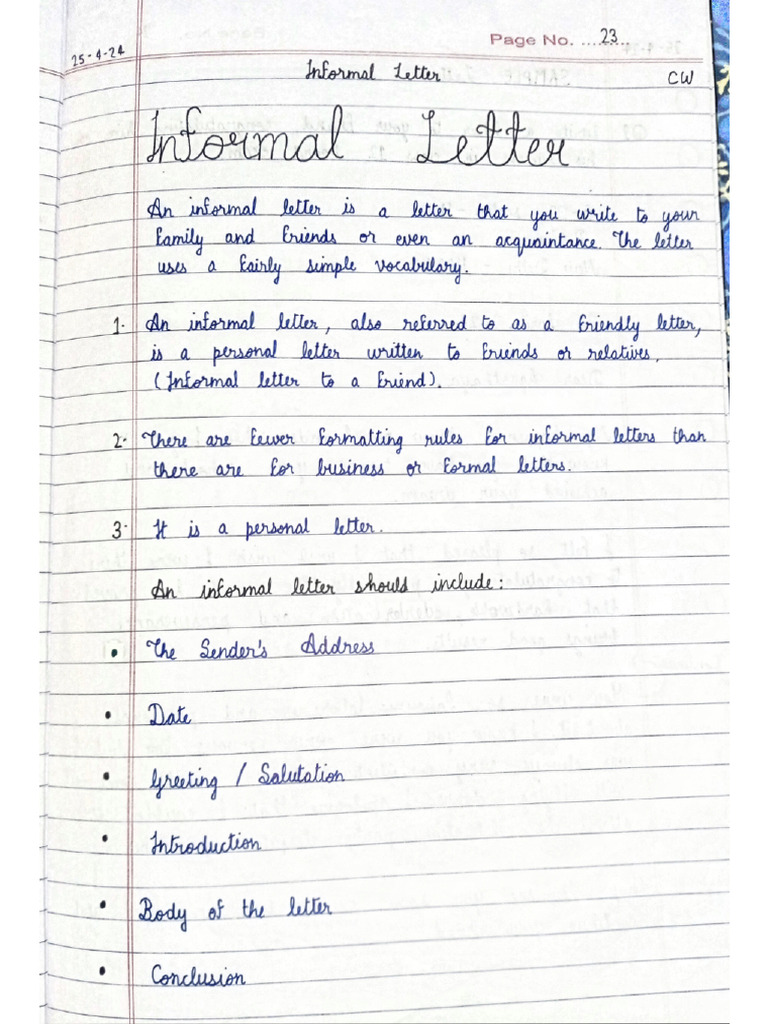 Page No. 23
25-4-24
Informal Letter CW
Informal Letter
An informal letter is a letter that you write to your
family and friends or even an acquaintance. The letter
uses a fairly simple vocabulary.
1. An informal letter, also referred to as a friendly letter,
is a personal letter written to friends or relatives.
(Informal letter to a friend).
2. There are fewer formatting rules for informal letters than
there are for business or formal letters.
3. It is a personal letter.
An informal letter should include:
• The Sender's Address
• Date
• Greeting / Salutation
• Introduction
• Body of the letter
• Conclusion